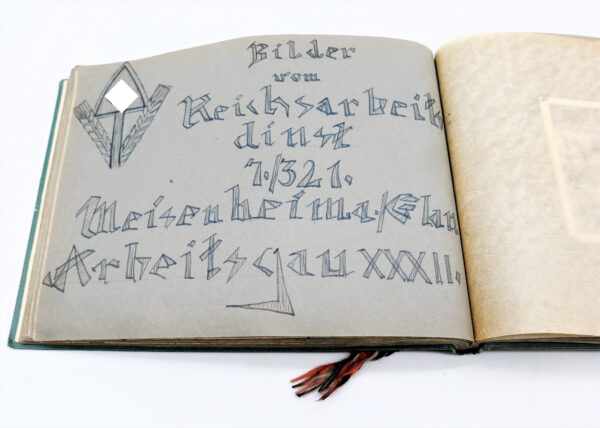 Bilder
vom
Reichsarbeits
dinst
7./321.
Meisenheim a./Glan
Arbeitsgau XXXII.